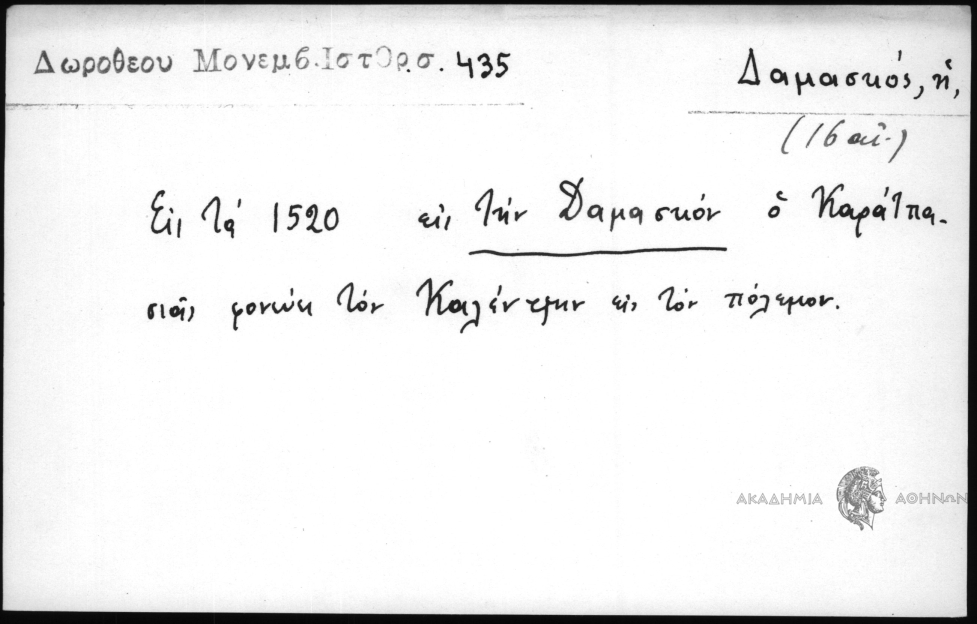 Δωροθεου Μονεμβ.Ιστορ.σ. 435
Δαμασκός, ἡ,
(16 αἰ.)
Εἰς τά 1520 εἰς τήν Δαμασκόν ὁ Καράϊπα-
σιᾶς φονεύει τόν εἰς τόν πόλεμον.
ΑΚΑΔΗΜΙΑ ΑΘΗΝΩΝ